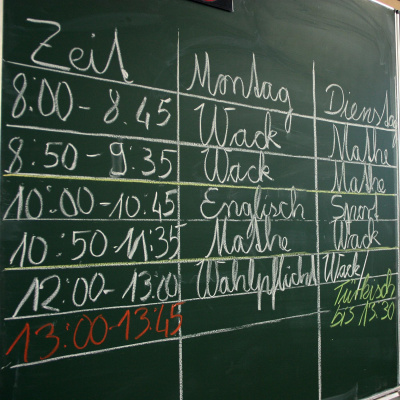 Zeit Montag Dienstag
8:00 - 8.45 Wack Mathe
8:50 - 9:35 Wack Mathe
10:00 - 10.45 Englisch Sport
10:50-11:35 Mathe Wack
12:00 - 13:00 Wahlpflicht Wack/
Türkisch
bis 13.30
13:00-13:45